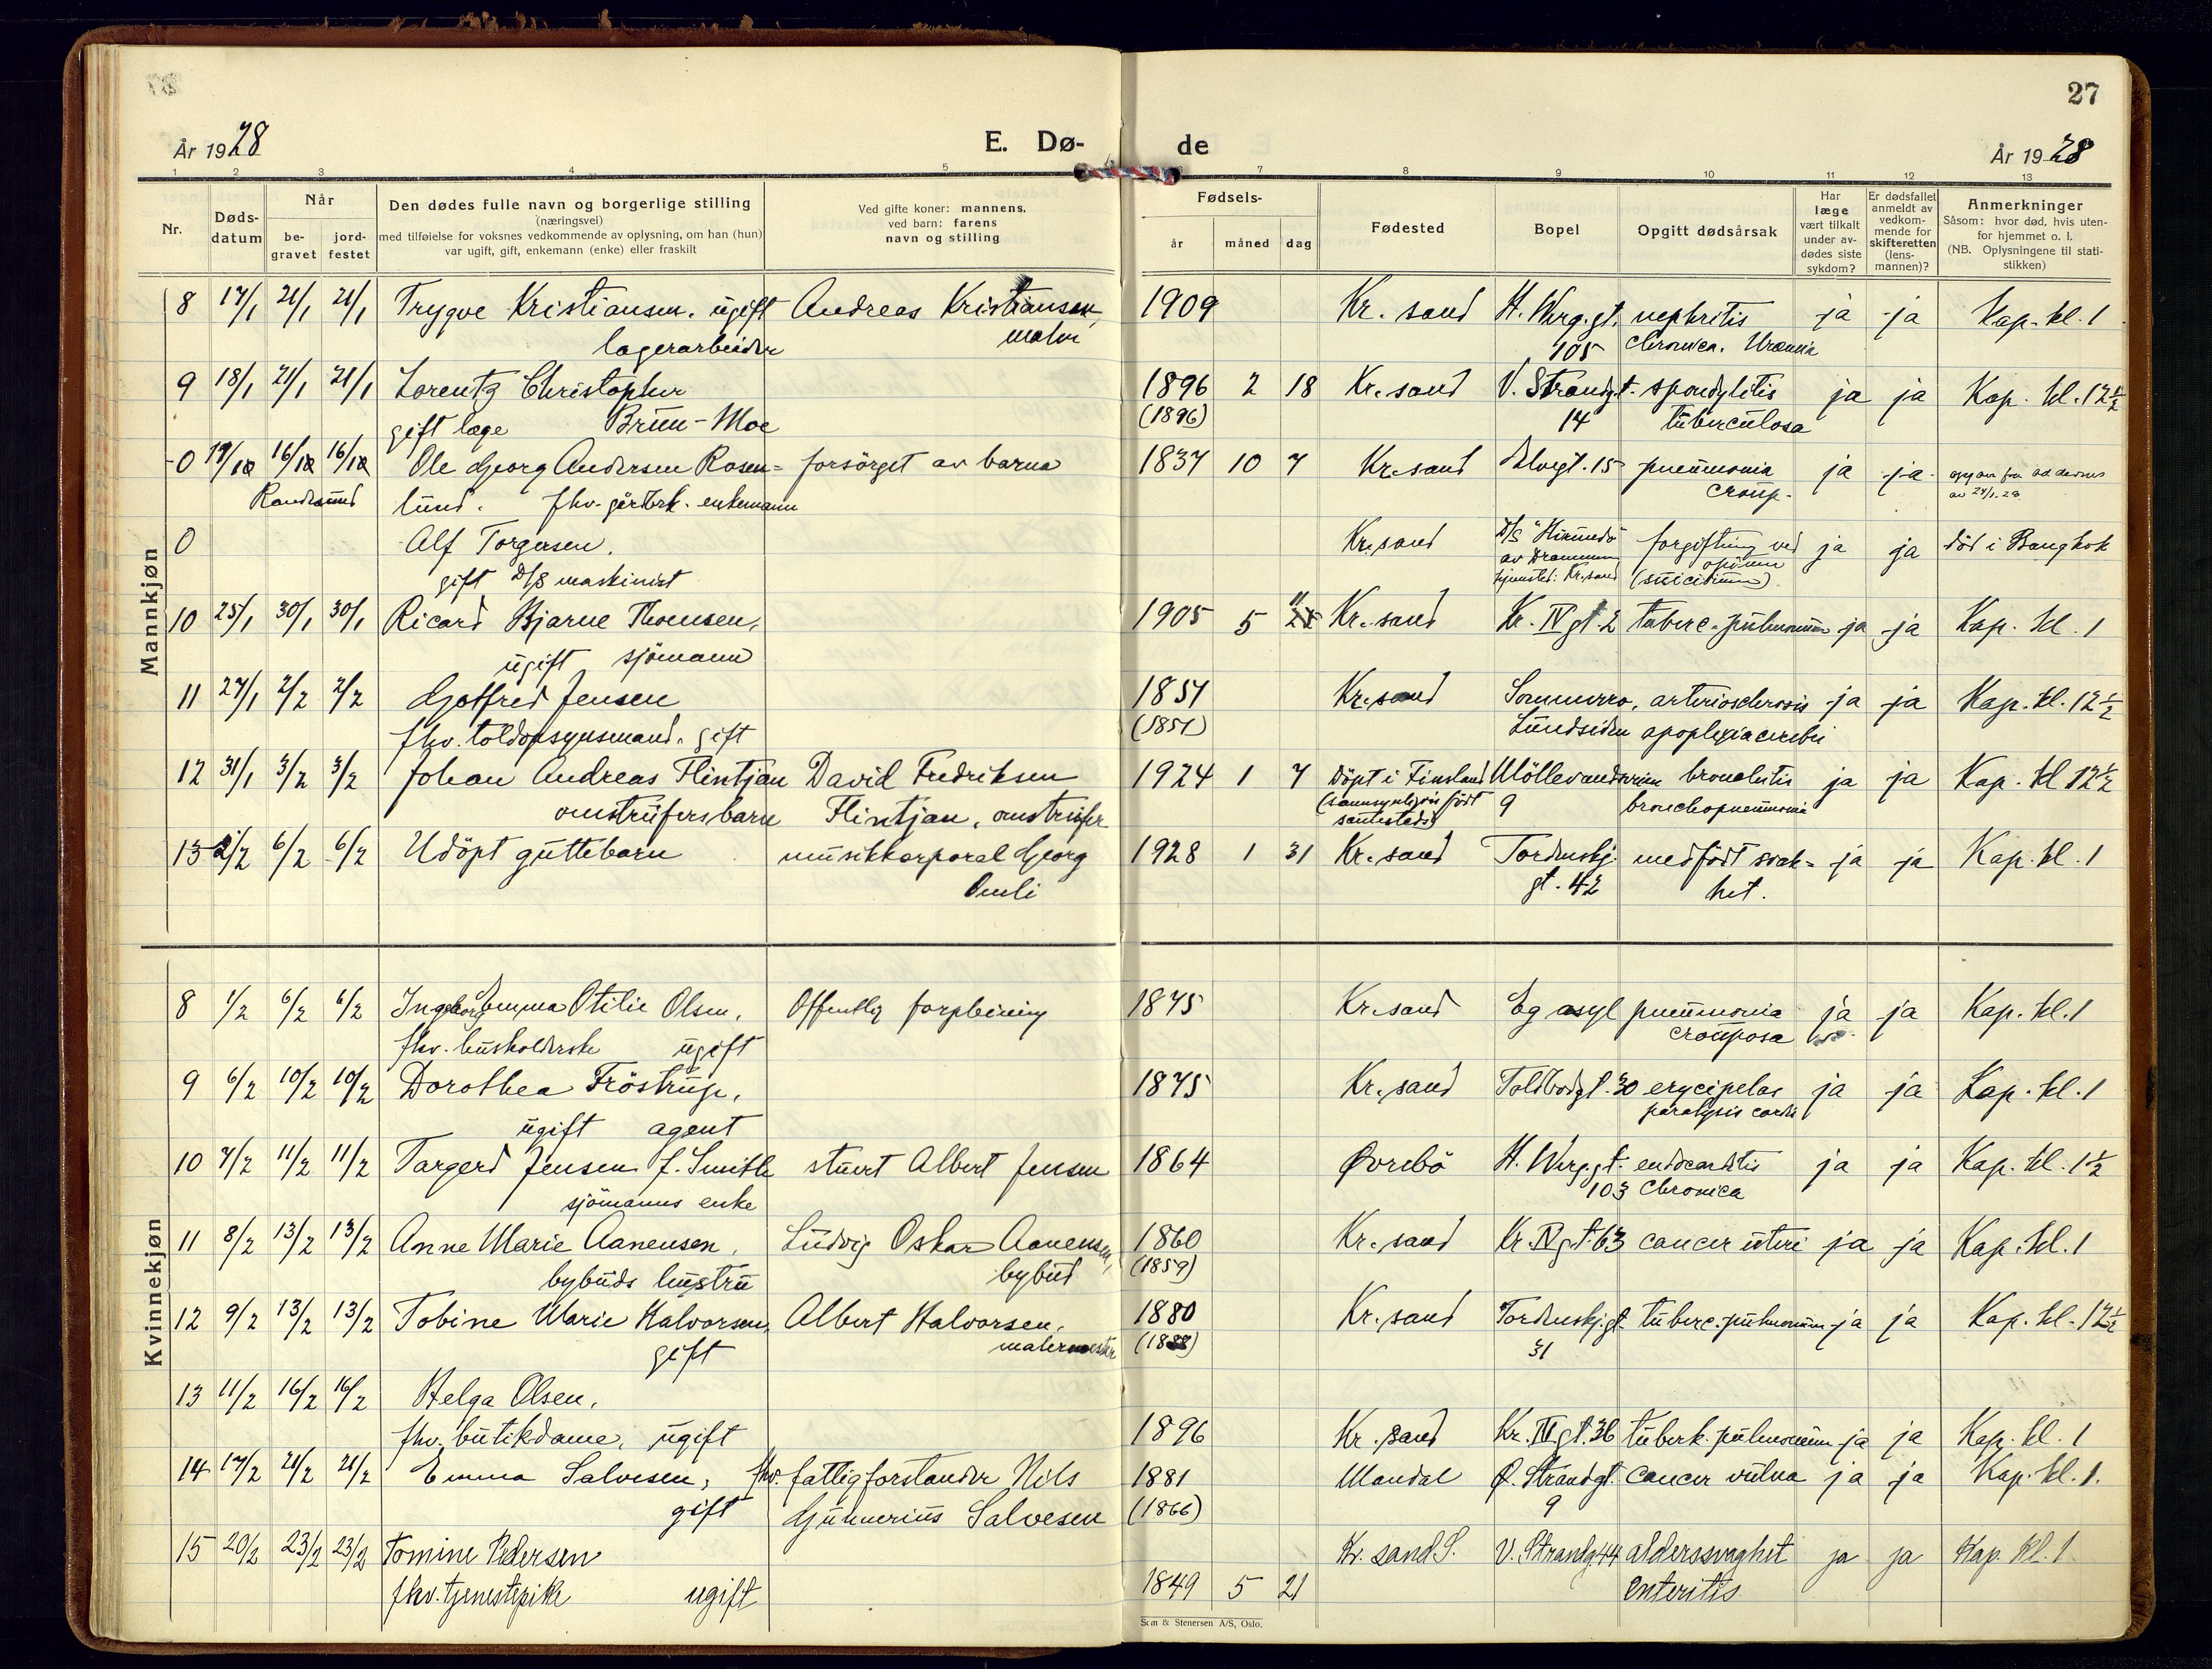 27
År 1928 E. Dø- de År 1928
1 2 3 4 5 6 7 8 9 10 11 12 13
Nr.
Døds-datum
Når
be-gravet
jord-festet
Den dødes fulle navn og borgerlige stilling
(næringsvei)
med tilføielse for voksnes vedkommende av oplysning, om han (hun)
var ugift, gift, enkemann (enke) eller fraskilt
Ved gifte koner: mannens,
ved barn: farens
navn og stilling
Fødsels-
år måned dag
Fødested
Bopel
Opgitt dødsårsak
Har læge vært tilkalt under av-dødes siste sykdom?
Er dødsfallet anmeldt av vedkom-mende for skifteretten (lens-mannen)?
Anmerkninger
Såsom: hvor død, hvis uten-
for hjemmet o. l.
(NB. Oplysningene til stati-
stikken)
Mannkjøn
8 17/1 21/1 21/1 Trygve Kristiansen. ugift Andreas Kristiansen, 1909 Kr. sand H. Werg.gt. nephritis ja ja Kap. kl. 1
lagerarbeider maler 105 chronica. Uræmia
9 18/1 21/1 21/1 Lorentz Christopher 1896 2 18 Kr. sand V. Strandgt. spondylitis ja ja Kap. kl. 12½
gift læge Bruun-Moe (1896) 14 tuberculosa
0 16/12 16/12 Ole Georg Andersen Rosen= forsörget av barna 1837 10 7 Kr. sand Elvegt. 15 pneumonia ja ja
Randesund lund. fhv. gårdbrk. enkemann croup.
av 24/1. 28
0 Alf Torgersen. Kr. sand D/S "Hirundo" forgiftning ved ja ja död i Bangkok
gift D/S maskinist av Drammen opium
hjemsted: Kr. sand (suicidium)
10 25/1 30/1 30/1 Ricard Bjarne Thomsen, 1905 5 11 Kr. sand Kr. IV gt. 2 tuberc. pulmonum ja ja Kap. kl. 1
ugift sjömann
11 27/1 2/2 2/2 Gotfred Jensen 1851 Kr. sand Sommerro, arteriosclerosis ja ja Kap. kl. 12½
fhv. toldopsynsmand. gift (1851) Lundsiden apoplexia cerebri
12 31/1 3/2 3/2 Johan Andreas Flintjan David Fredriksen 1924 1 7 Döpt i Finsland Möllevandsveien bronchitis ja ja Kap. kl 12½
omstreifersbarn Flintjan, omstreifer (sannsynligvis født 9 bronchopneumonia
sammesteds)
13 2/2 6/2 6/2 Udöpt guttebarn musikkorporal Georg 1928 1 31 Kr. sand Tordenskj. medfödt svak= ja ja Kap. kl. 1
Omli gt. 42 het.
Kvinnekjøn
8 1/2 6/2 6/2 Ingeborg Emma Otilie Olsen, Offentlig forpleining 1875 Kr. sand Eg asyl pneumonia ja ja Kap. kl. 1
fhv. husholderske ugift crouposa
9 6/2 10/2 10/2 Dorothea Fröstrup, 1875 Kr. sand Toldbodgt. 30 erycipelas ja ja Kap. kl. 1
ugift agent paralysis cordis
10 7/2 11/2 11/2 Targerd Jensen f. Smith stuert Albert Jensen 1864 Øvrebö H. Werg.gt. endocarditis ja ja Kap. kl. 1½
sjömanns enke 103 chronica
11 8/2 13/2 13/2 Anne Marie Aanensen, Ludvig Oskar Aanensen, 1860 Kr. sand Kr. IV gt 63 cancer uteri ja ja Kap. kl. 1
bybuds hustru bybud (1859)
12 9/2 13/2 13/2 Tobine Marie Halvorsen, Albert Halvorsen, 1880 Kr. sand Tordenskj.gt. tuberc. pulmonum ja ja Kap. kl. 12½
gift malermester 31
13 11/2 16/2 16/2 Helga Olsen,
fhv. butikdame, ugift 1896 Kr. sand Kr. IV gt. 36 tuberk. pulmonum ja ja Kap. kl. 1
14 17/2 21/2 21/2 Emma Salvesen, fhv. fattigforstander Nils 1881 Mandal Ø. Strandgt. cancer vulva ja ja Kap. kl. 1.
gift Gunnerius Salvesen (1866) 9
15 20/2 23/2 23/2 Tomine Pedersen Kr. sand S. V. Strandg 44 alderssvaghet ja ja Kap. kl. 1
fhv. tjenestepike ugift 1849 5 21 enteritis.
Sem & Stenersen A/S, Oslo.